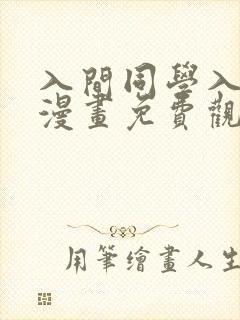 入間同學入
漫畫免費觀
用筆繪畫人生